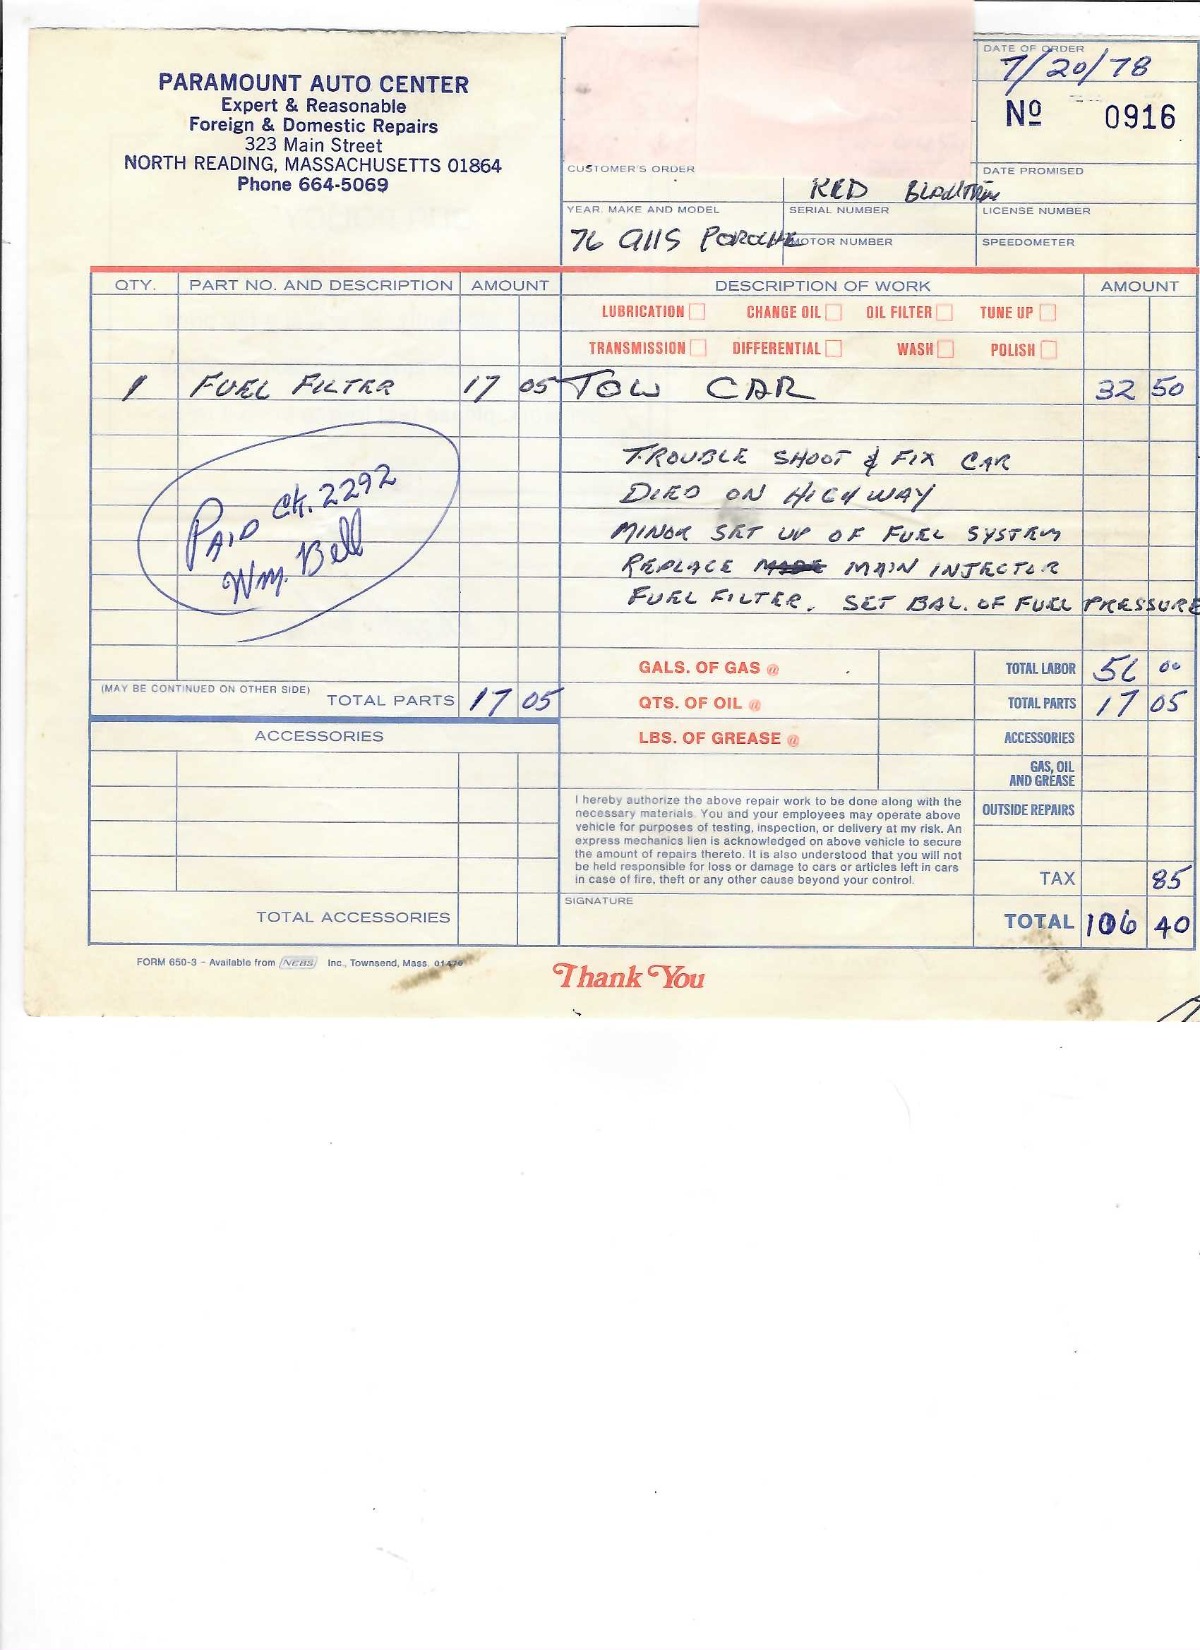 PARAMOUNT AUTO CENTER
Expert & Reasonable
Foreign & Domestic Repairs
323 Main Street
NORTH READING, MASSACHUSETTS 01864
Phone 664-5069
DATE OF ORDER
7/20/78
Nº 0916
CUSTOMER'S ORDER
DATE PROMISED
RED
YEAR, MAKE AND MODEL
SERIAL NUMBER
LICENSE NUMBER
76 911S
MOTOR NUMBER
SPEEDOMETER
QTY. PART NO. AND DESCRIPTION AMOUNT DESCRIPTION OF WORK AMOUNT
LUBRICATION CHANGE OIL OIL FILTER TUNE UP
TRANSMISSION DIFFERENTIAL WASH POLISH
1 FUEL FILTER 17 05 TOW CAR 32 50
TROUBLE SHOOT & FIX CAR
DIED ON HIGHWAY
MINOR SET UP OF FUEL SYSTEM
REPLACE MAIN INJECTOR
FUEL FILTER. SET BAL. OF FUEL PRESSURE
PAID CK. 2292
Wm. Bell
GALS. OF GAS @ TOTAL LABOR 56 00
(MAY BE CONTINUED ON OTHER SIDE) TOTAL PARTS 17 05
QTS. OF OIL @ TOTAL PARTS 17 05
ACCESSORIES
LBS. OF GREASE @ ACCESSORIES
GAS, OIL
AND GREASE
OUTSIDE REPAIRS
I hereby authorize the above repair work to be done along with the
necessary materials. You and your employees may operate above
vehicle for purposes of testing, inspection, or delivery at my risk. An
express mechanics lien is acknowledged on above vehicle to secure
the amount of repairs thereto. It is also understood that you will not
be held responsible for loss or damage to cars or articles left in cars
in case of fire, theft or any other cause beyond your control.
TAX 85
SIGNATURE
TOTAL ACCESSORIES
TOTAL 106 40
FORM 650-3 – Available from NEBS Inc., Townsend, Mass.
Thank You